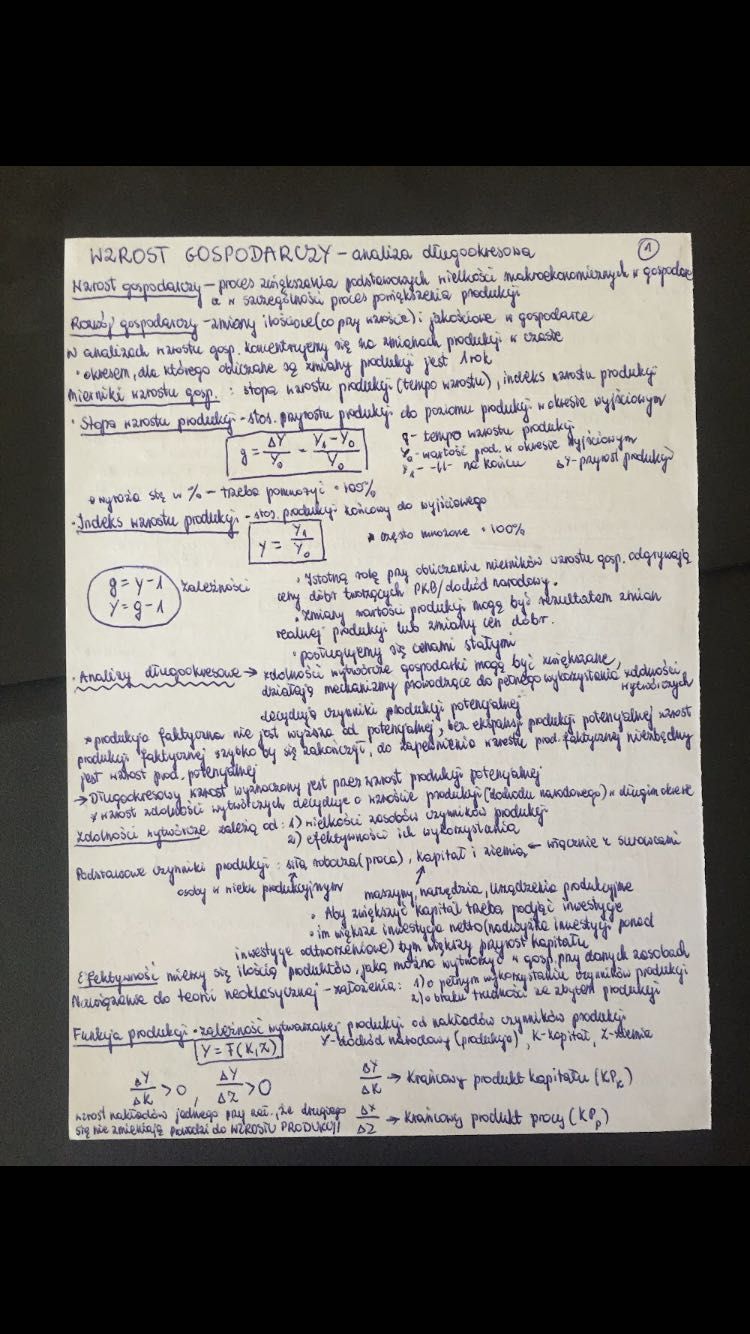 WZROST GOSPODARCZY – analiza długookresowa
1
Wzrost gospodarczy – proces zwiększania podstawowych wielkości makroekonomicznych w gospodarce
a w szczególności proces powiększenia produkcji
Rozwój gospodarczy – zmiany ilościowe (co przy wzroście) i jakościowe w gospodarce
W analizach wzrostu gosp. koncentrujemy się na zmianach produkcji w czasie
• okresem, dla którego obliczane są zmiany produkcji jest 1 rok
Mierniki wzrostu gosp. : stopa wzrostu produkcji (tempo wzrostu), indeks wzrostu produkcji
• Stopa wzrostu produkcji – stos. przyrostu produkcji do poziomu produkcji w okresie wyjściowym
g = ΔY/Y₀ = Y₁ – Y₀/Y₀
g – tempo wzrostu produkcji
Y₀ – wartość prod. w okresie wyjściowym
Y₁ – -||- na końcu ΔY – przyrost produkcji
• wyraża się w % – trzeba pomnożyć • 100%
• Indeks wzrostu produkcji – stos. produkcji końcowej do wyjściowego
y = Y₁/Y₀
• często mnożone • 100%
g = y – 1
y = g – 1
zależności
• Istotną rolę przy obliczaniu mierników wzrostu gosp. odgrywają
ceny dóbr tworzących PKB/dochód narodowy.
• Zmiany wartości produkcji mogą być rezultatem zmian
realnej produkcji lub zmiany cen dóbr.
• posługujemy się cenami stałymi
• Analizy długookresowe → zdolności wytwórcze gospodarki mogą być zwiększane,
działają mechanizmy prowadzące do pełnego wykorzystania zdolności
wytwórczych
decydują czynniki produkcji potencjalnej
• produkcja faktyczna nie jest wyższa od potencjalnej, bez ekspansji produkcji potencjalnej wzrost
produkcji faktycznej szybko by się zakończył, do zapewnienia wzrostu prod. faktycznej niezbędny
jest wzrost prod. potencjalnej
→ Długookresowy wzrost wyznaczony jest przez wzrost produkcji potencjalnej
• wzrost zdolności wytwórczych decyduje o wzroście produkcji (dochodu narodowego) w długim okresie
Zdolności wytwórcze zależą od: 1) wielkości zasobów czynników produkcji
2) efektywności ich wykorzystania
Podstawowe czynniki produkcji : siła robocza (praca), kapitał i ziemia ← włącznie z surowcami
osoby w wieku produkcyjnym
maszyny, narzędzia, urządzenia produkcyjne
• Aby zwiększyć kapitał trzeba podjąć inwestycje
• im większe inwestycje netto (nadwyżka inwestycji ponad
inwestycje odtworzeniowe) tym większy przyrost kapitału
Efektywność mierzy się ilością produktów, jaką można wytworzyć w gosp. przy danych zasobach
Nawiązanie do teorii neoklasycznej – założenia: 1) o pełnym wykorzystaniu czynników produkcji
2) o braku trudności ze zbytem produkcji
Funkcja produkcji • zależność wytwarzanej produkcji od nakładów czynników produkcji
Y = F(K, Z)
Y – dochód narodowy (produkcja), K – kapitał, Z – ziemia
ΔY/ΔK > 0, ΔY/ΔZ > 0
ΔY/ΔK → Krańcowy produkt kapitału (KPK)
wzrost nakładów jednego przy zał., że drugiego
się nie zmieniają prowadzi do WZROSTU PRODUKCJI
ΔX/ΔZ → Krańcowy produkt pracy (KPp)